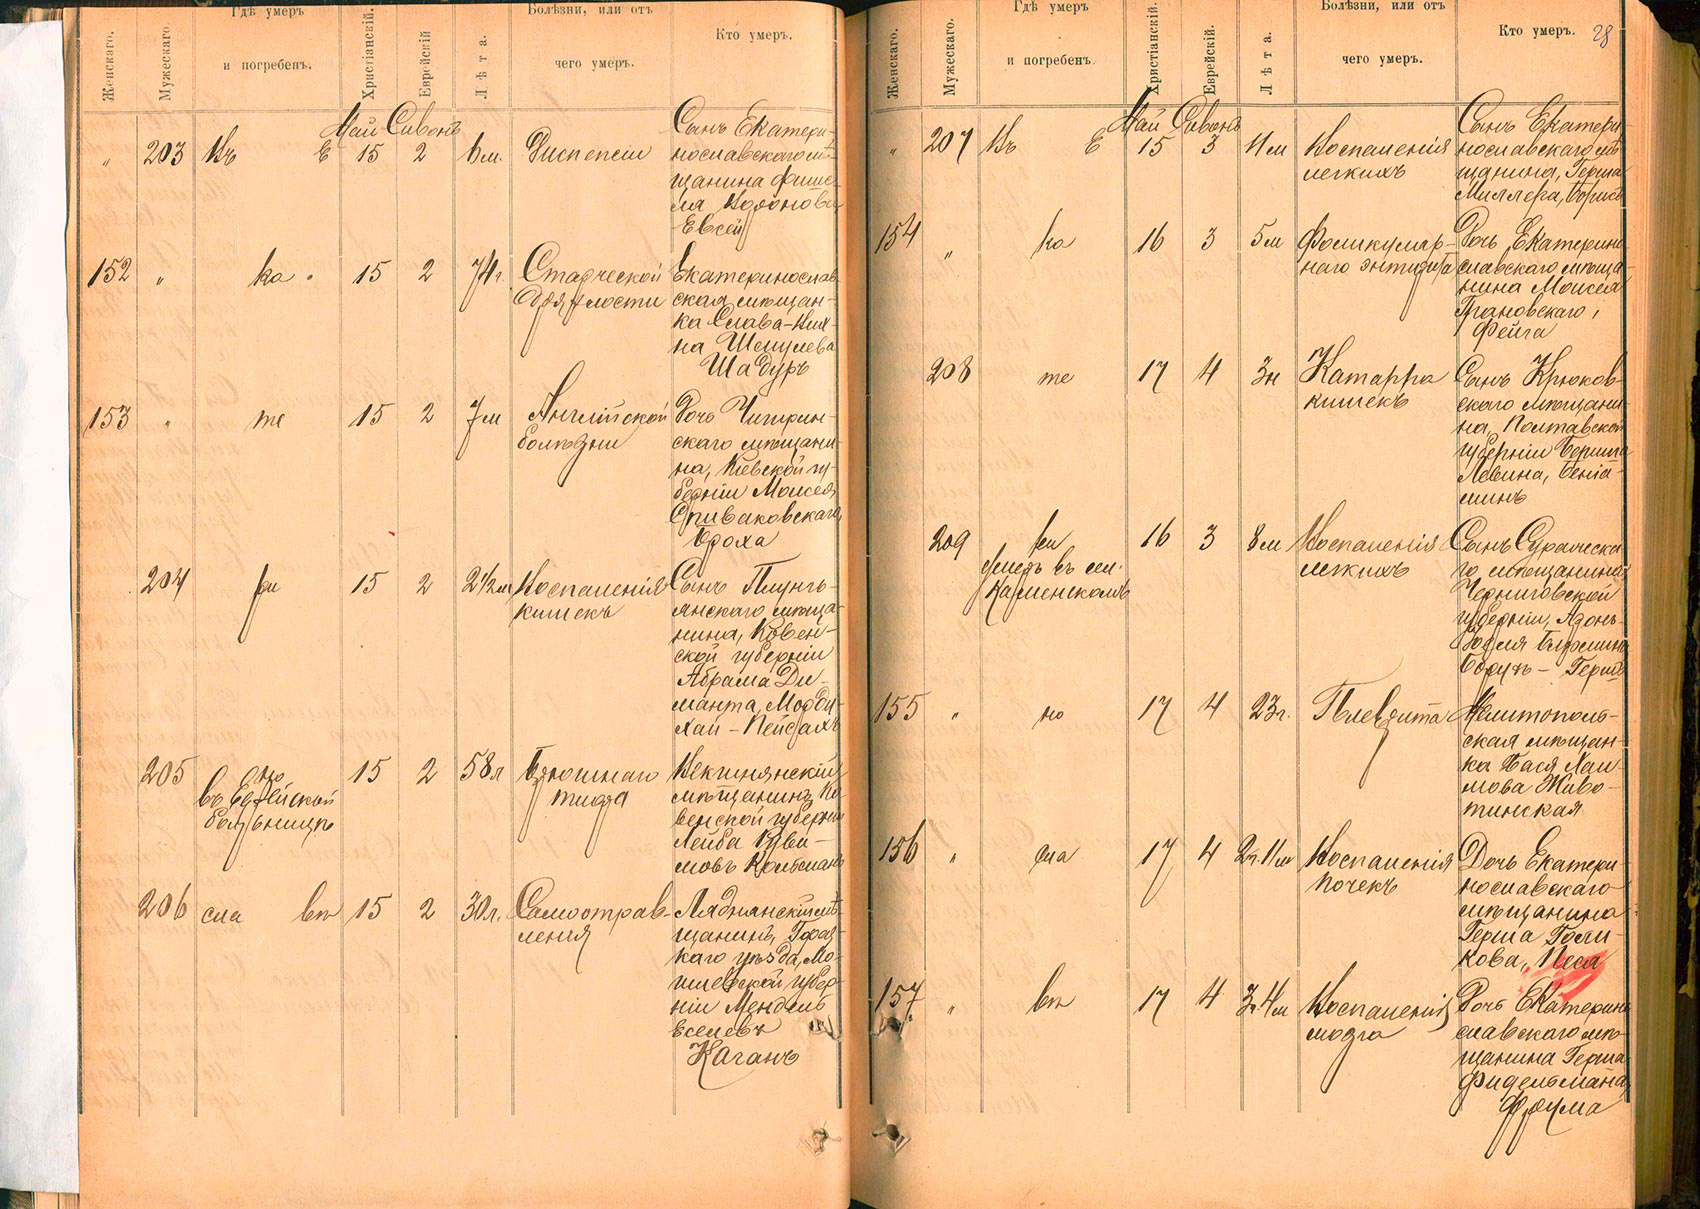 Женскаго.
Мужескаго
Гдѣ умеръ
и погребенъ.
Христіанскій.
Еврейскій
Лѣта.
Болѣзни, или отъ
чего умеръ.
Кто умеръ.
Май Сивонъ
" 203 Въ Е 15 2 6 м. Диспепсіи
Сынъ Екатери-
нославскаго мѣ-
щанина Фише-
ля
Евсей
152 " ка 15 2 74 г. Старческой
дряхлости
Екатеринослав-
ская мѣщан-
ка Слава-
на Шмулева
Шадуръ
153 " те 15 2 7 м Англійской
болѣзни
Дочь Чигирин-
скаго мѣщани-
на, Кіевской гу-
берніи Моисея
Сриваковскаго,
Броха
204 ри 15 2 2 1/2 м Воспаленія
кишекъ
Сынъ Плунгъ-
янскаго мѣща-
нина, Ковен-
ской губерніи
Абрама Ди-
манта, Морду-
хай-Пейсахъ
205 но
въ Еврейской
больницѣ
15 2 58 л Брюшнаго
тифа
Векшнянскій
мѣщанинъ Ко
венской губерніи
Лейба Руви-
мовъ
206 сла вт 15 2 30 л. Самоотрав-
ленія
Ляднянскій мѣ-
щанинъ, Горец-
каго уѣзда, Мо-
гилевской губер-
ніи Мендель
Еселевъ
Каганъ
Женскаго.
Мужескаго.
Гдѣ умеръ
и погребенъ
Христіанскій.
Еврейскій.
Лѣта.
Болѣзни, или отъ
чего умеръ.
Кто умеръ.
28
Май Сивонъ
" 207 Въ Е 15 3 11 м Воспаленія
легкихъ
Сынъ Екатери-
нославскаго мѣ
щанина, Герша
Миллера, Борисъ
154 " ка 16 3 5 м Фолликуляр-
наго энтерита
Дочь Екатерино
славскаго мѣща-
нина Моисея
Грановскаго,
Фейга
208 те 17 4 3 н Катарра
кишекъ
Сынъ Крюков-
скаго мѣщани-
на, Полтавской
губерніи Берша
Левина, Бенiа-
минъ
209 ри
умеръ въ сел.
Каменскомъ
16 3 8 м Воспаленія
легкихъ
Сынъ Суражска-
го мѣщанина
Черниговской
губерніи,
Борухъ-Герш
155 " но 17 4 23 г. Плеврита
Мелитополь-
ская мѣщан-
ка Хася Хаи-
мова Живо-
тинская
156 " сла 17 4 2 г. 11 м Воспаленія
почекъ
Дочь Екатери-
нославскаго
мѣщанина
Герша Голи-
кова, Песя
157 " вт 17 4 3 г. 4 м Воспаленія
мозга
Дочь Екатерино
славскаго мѣ-
щанина Герша
Фидельмана,
Фрума